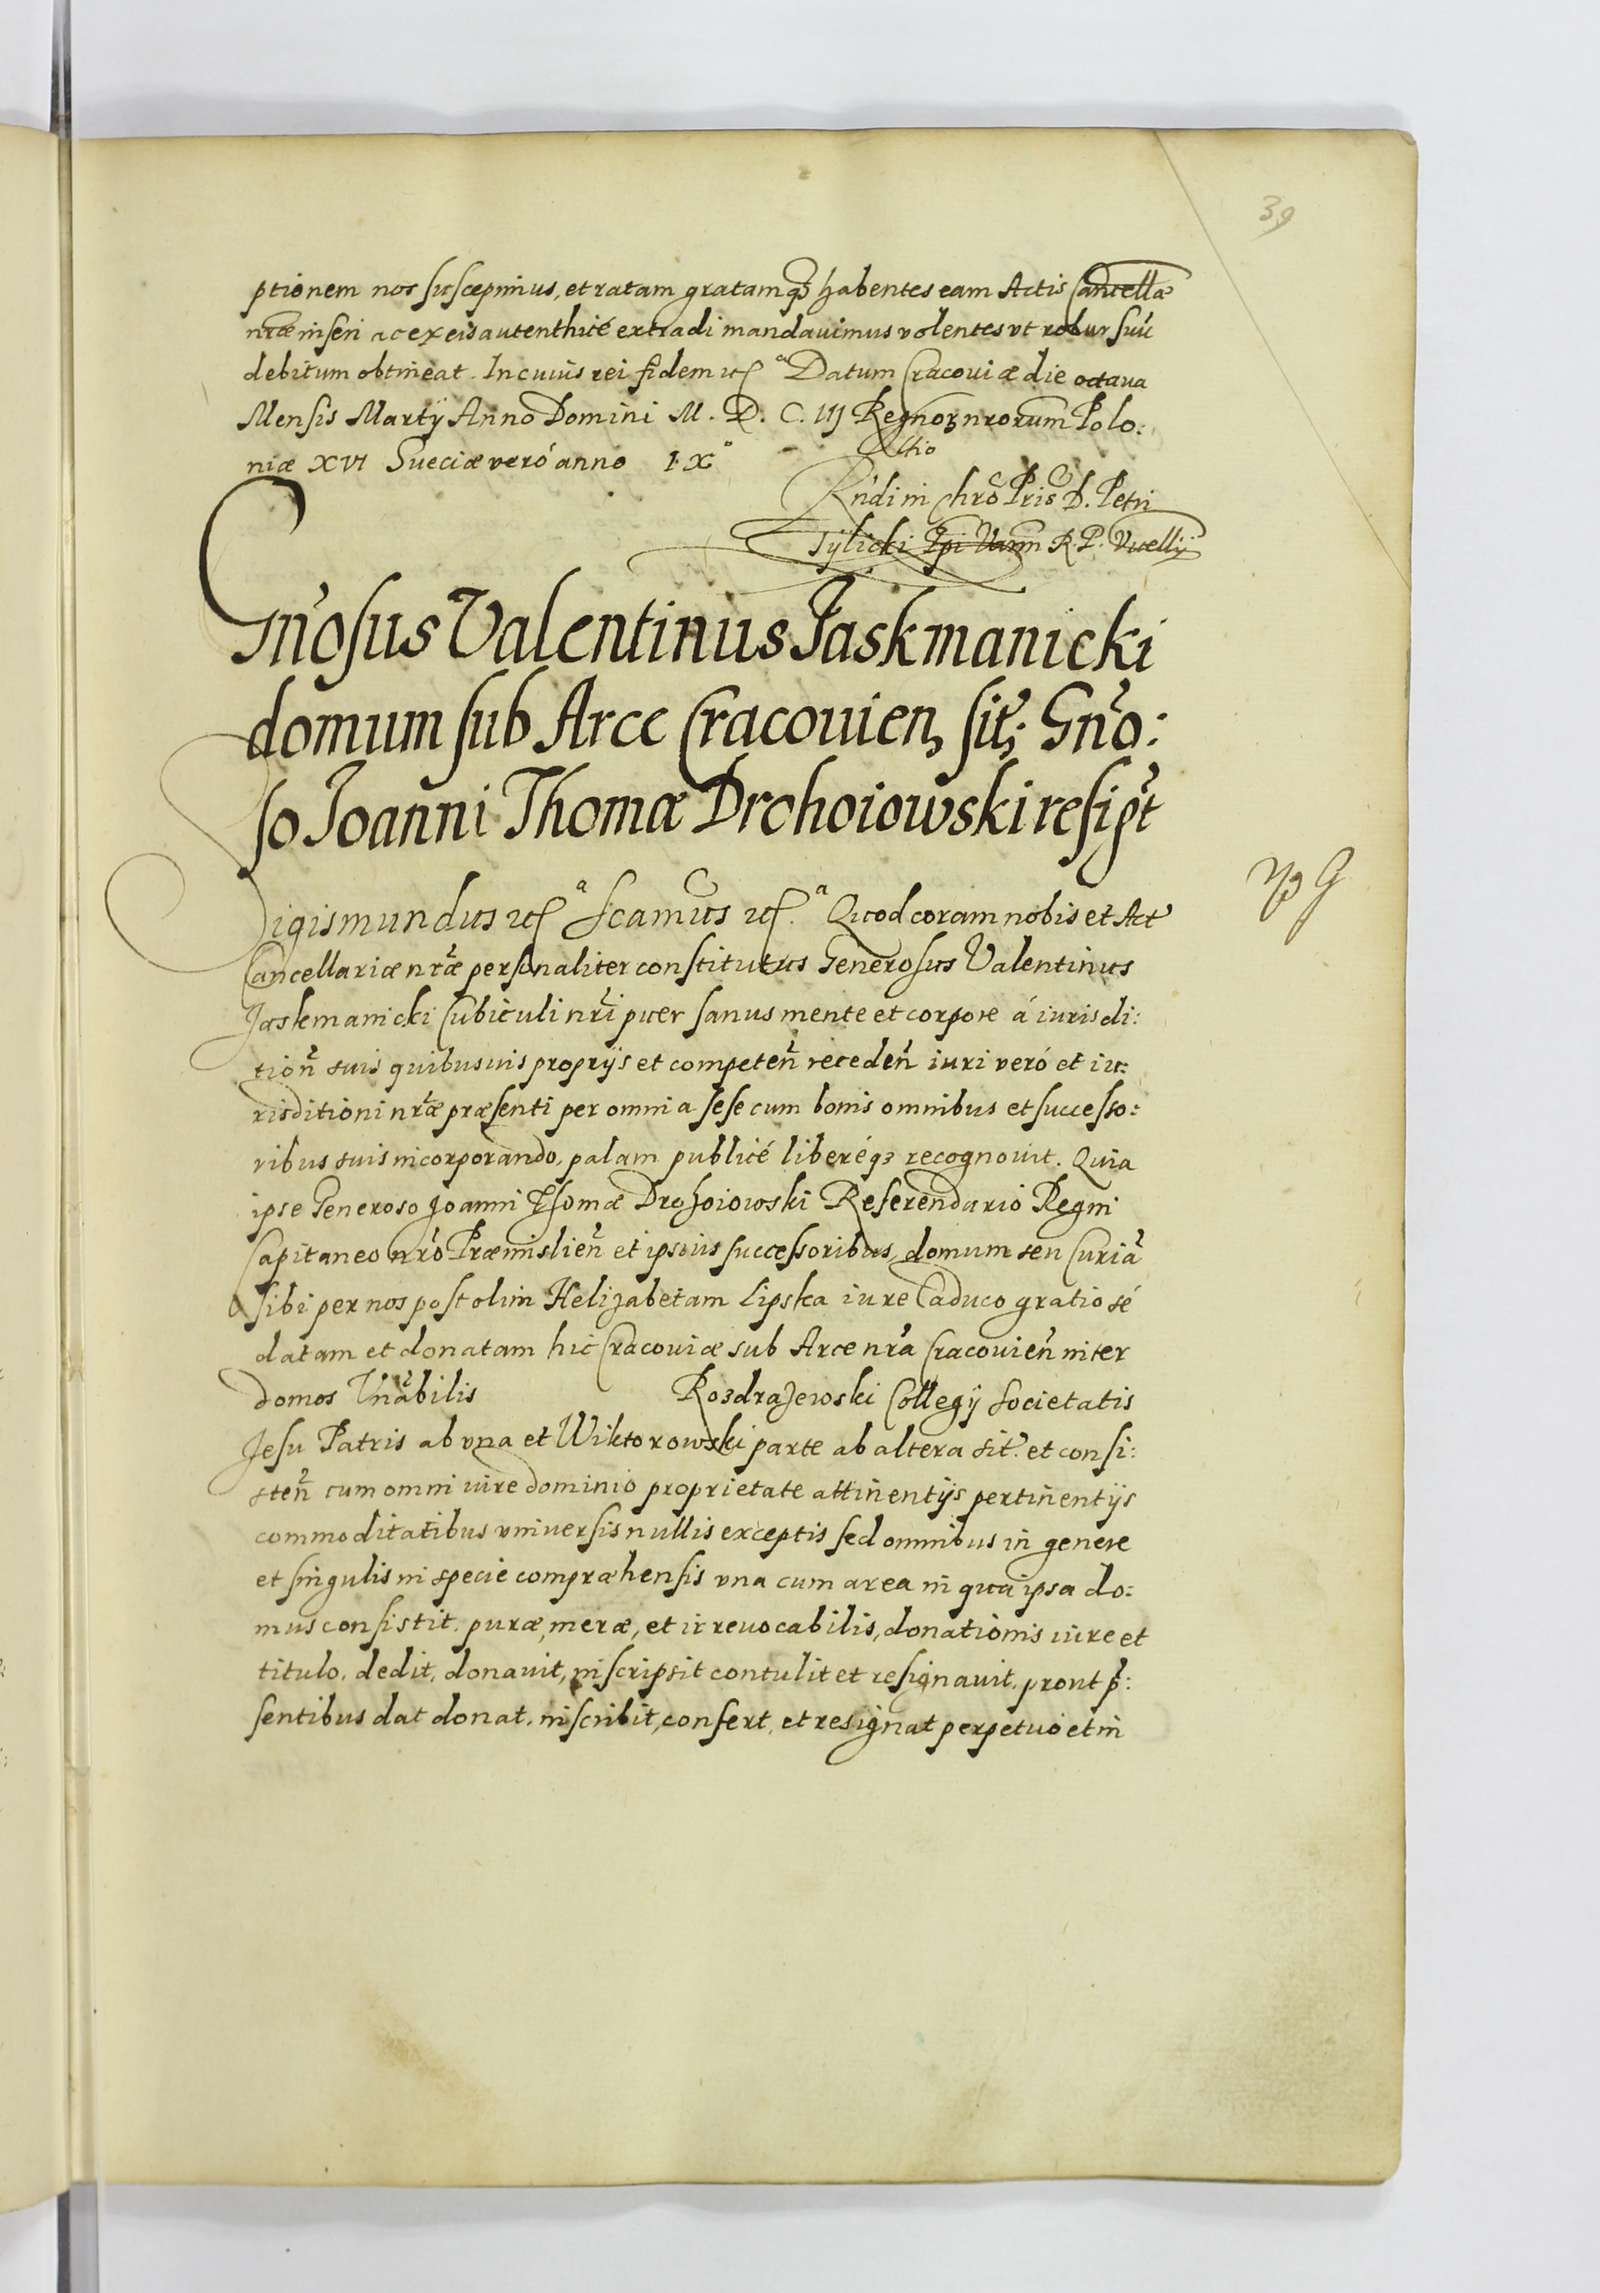 39
ptionem nos suscepimus, et ratam gratamq3 habentes eam Actis Cancellæ
nræ inseri ac ex eis autenthicé extradi mandavimus volentes vt robur suũ
debitum obtineat. In cuius rei fidem etc̃ Datum Cracouiæ die octaua
Mensis Martÿ Anno Domini M. D. C. III Regnoꝝ nrorum Polo:
niæ XVI Sueciæ veró anno IX°
Rñdi in Chrõ Pris D. Petri
Tÿlicki Epi Varm R. P. Vicelly
Gñosus Valentinus Jaskmanicki
domum sub Arce Cracouien, sit; Gño:
so Joanni Thomæ Drohoiowski resigt
Sigismundus etc̃ Scamus etc̃. Quod coram nobis et Act
Cancellariæ nr̃æ personaliter constitutus Generosus Valentinus
Jaskmanicki Cubiculi nr̃i puer sanus mente et corpore á iurisdi:
tioñ suis quibusuis proprijs et competeñ recedeñ iuri veró et iu:
risditioni nr̃æ præsenti per omnia sese cum bonis omnibus et successo:
ribus suis incorporando, palam publicé liberéq3 recognouit. Quia
ipse Generoso Joanni Thomæ Drohoiowski Referendario Regni
Capitaneo nr̃o Præmislieñ et ipsius successoribus, domum seu Curiã
sibi per nos post olim Helizabetam Lipska iure Caduco gratiosé
datam et donatam hic Cracouiæ sub Arce nr̃a Cracouieñ inter
domos Vnãbilis Rozdrajewski Collegÿ Societatis
Jesu Patris ab vna et Wiktorowski parte ab altera sit. et consi:
steñ cum omni iure dominio proprietate attinentijs pertinentijs
commoditatibus vniuersis nullis exceptis sed omnibus in genere
et singulis in specie compræhensis vna cum area in qua ipsa do:
mus consistit. puræ, meræ, et irreuocabilis, donationis iure et
titulo. dedit, donauit, inscripsit contulit et resignauit. prout p̃:
sentibus dat donat. inscribit, confert, et resignat perpetuo et in